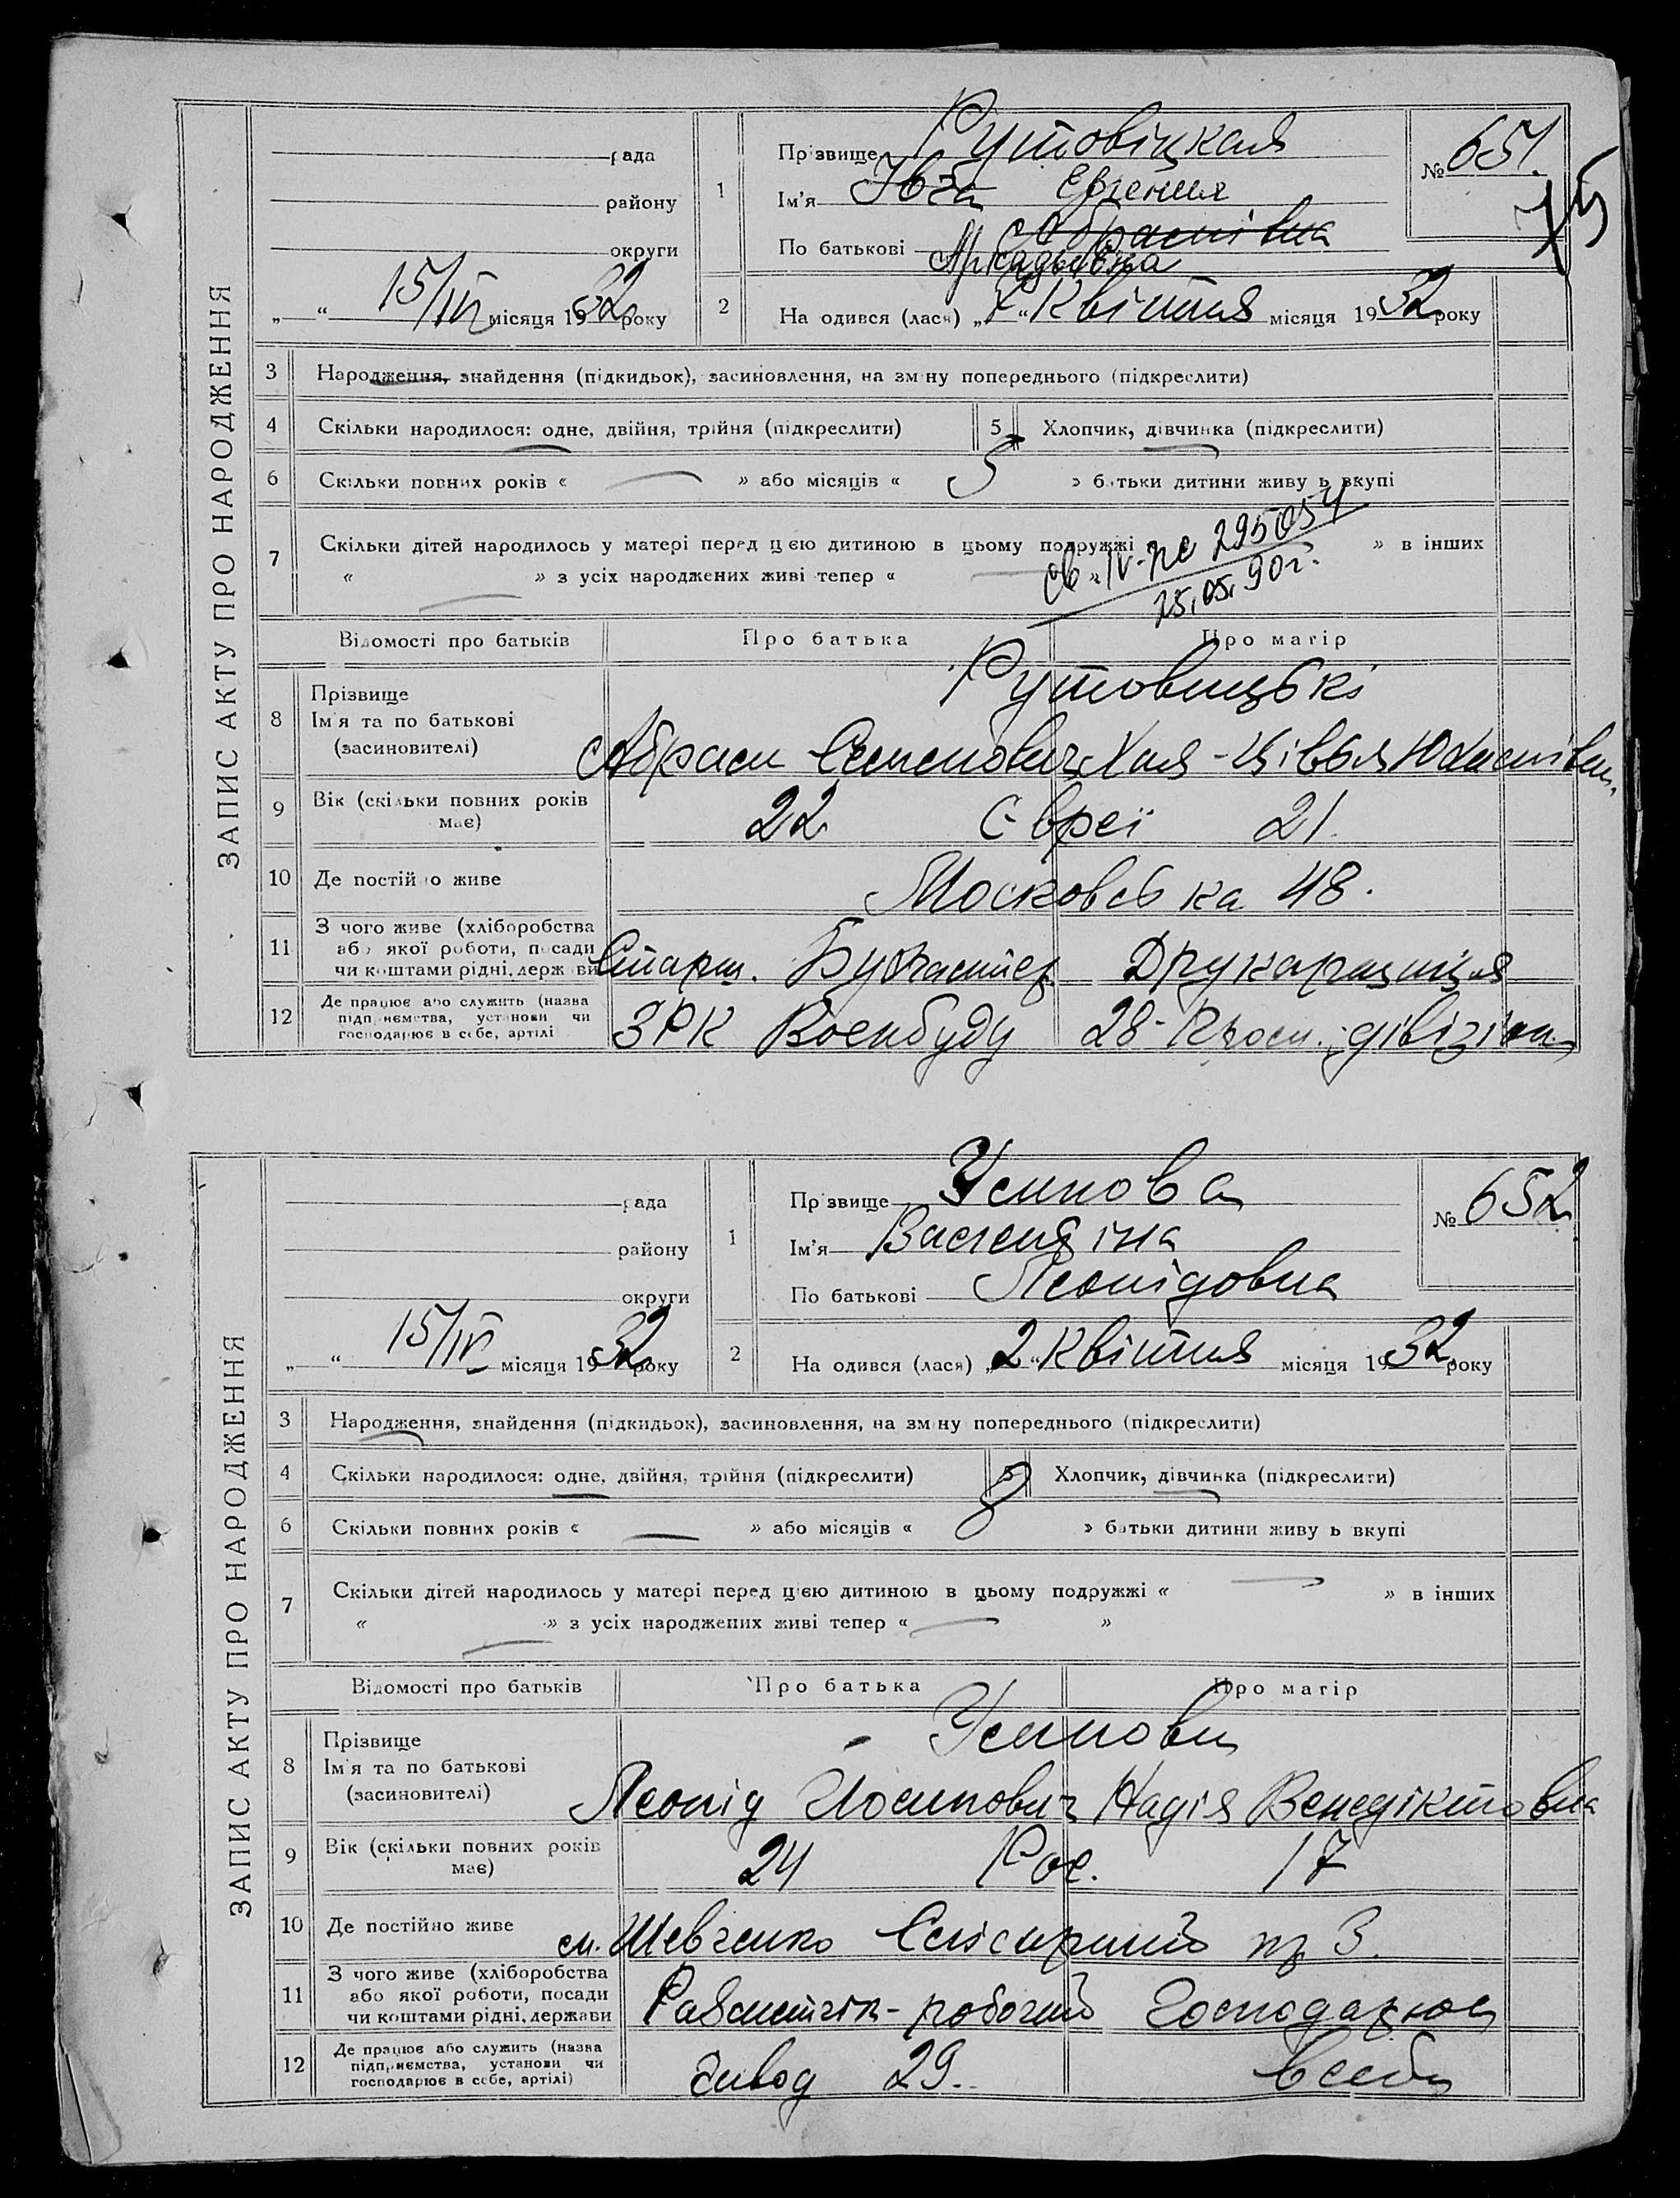 ЗАПИС АКТУ ПРО НАРОДЖЕННЯ
рада
району
округи
„ “ 15/IV місяця 1932 року
1
Прізвище Рутовіцкая
Ім'я Евгения
По батькові Абрамівна
Аркадьевна
№ 651.
2
На одився (лася) „7“ Квітня місяця 1932 року
3 Народження, знайдення (підкидьок), засиновлення, на зміну попереднього (підкреслити)
4 Скільки народилося: одне, двійня, трійня (підкреслити) 5 Хлопчик, дівчинка (підкреслити)
6 Скільки повних років « — » або місяців « » батьки дитини живуть вкупі
7 Скільки дітей народилось у матері перед цією дитиною в цьому подружжі » в інших
« » з усіх народжених живі тепер «
295054
25.05.90г.
Відомості про батьків Про батька Про матір
8 Прізвище
Ім'я та по батькові
(засиновителі)
Рутовицькі
Абрам Семенович Хая-Цівья
9 Вік (скільки повних років має) 22 Євреї 21.
10 Де постійно живе Московська 48.
11 З чого живе (хліборобства
або якої роботи, посади
чи коштами рідні, держави
Старш. Друкарщиця
12 Де працює або служить (назва
підприємства, установи чи
господарює в себе, артілі
ЗРК Воєнбуду 28- дівізіон
ЗАПИС АКТУ ПРО НАРОДЖЕННЯ
рада
району
округи
„ “ 15/IV місяця 1932 року
1
Прізвище Усикова
Ім'я
По батькові Леонідовна
№ 652
2
На одився (лася) „2“ Квітня місяця 1932 року
3 Народження, знайдення (підкидьок), засиновлення, на зміну попереднього (підкреслити)
4 Скільки народилося: одне, двійня, трійня (підкреслити) 5 Хлопчик, дівчинка (підкреслити)
6 Скільки повних років « — » або місяців « » батьки дитини живуть вкупі
7 Скільки дітей народилось у матері перед цією дитиною в цьому подружжі « — » в інших
« — » з усіх народжених живі тепер « — »
Відомості про батьків Про батька Про матір
8 Прізвище
Ім'я та по батькові
(засиновителі)
Усикови
Леонід Йосипович Надія Венедіктовна
9 Вік (скільки повних років має) 24 Рос. 17
10 Де постійно живе Шевченко 3.
11 З чого живе (хліборобства
або якої роботи, посади
чи коштами рідні, держави
робочий Господарює
12 Де працює або служить (назва
підприємства, установи чи
господарює в себе, артілі)
завод 29. в себе